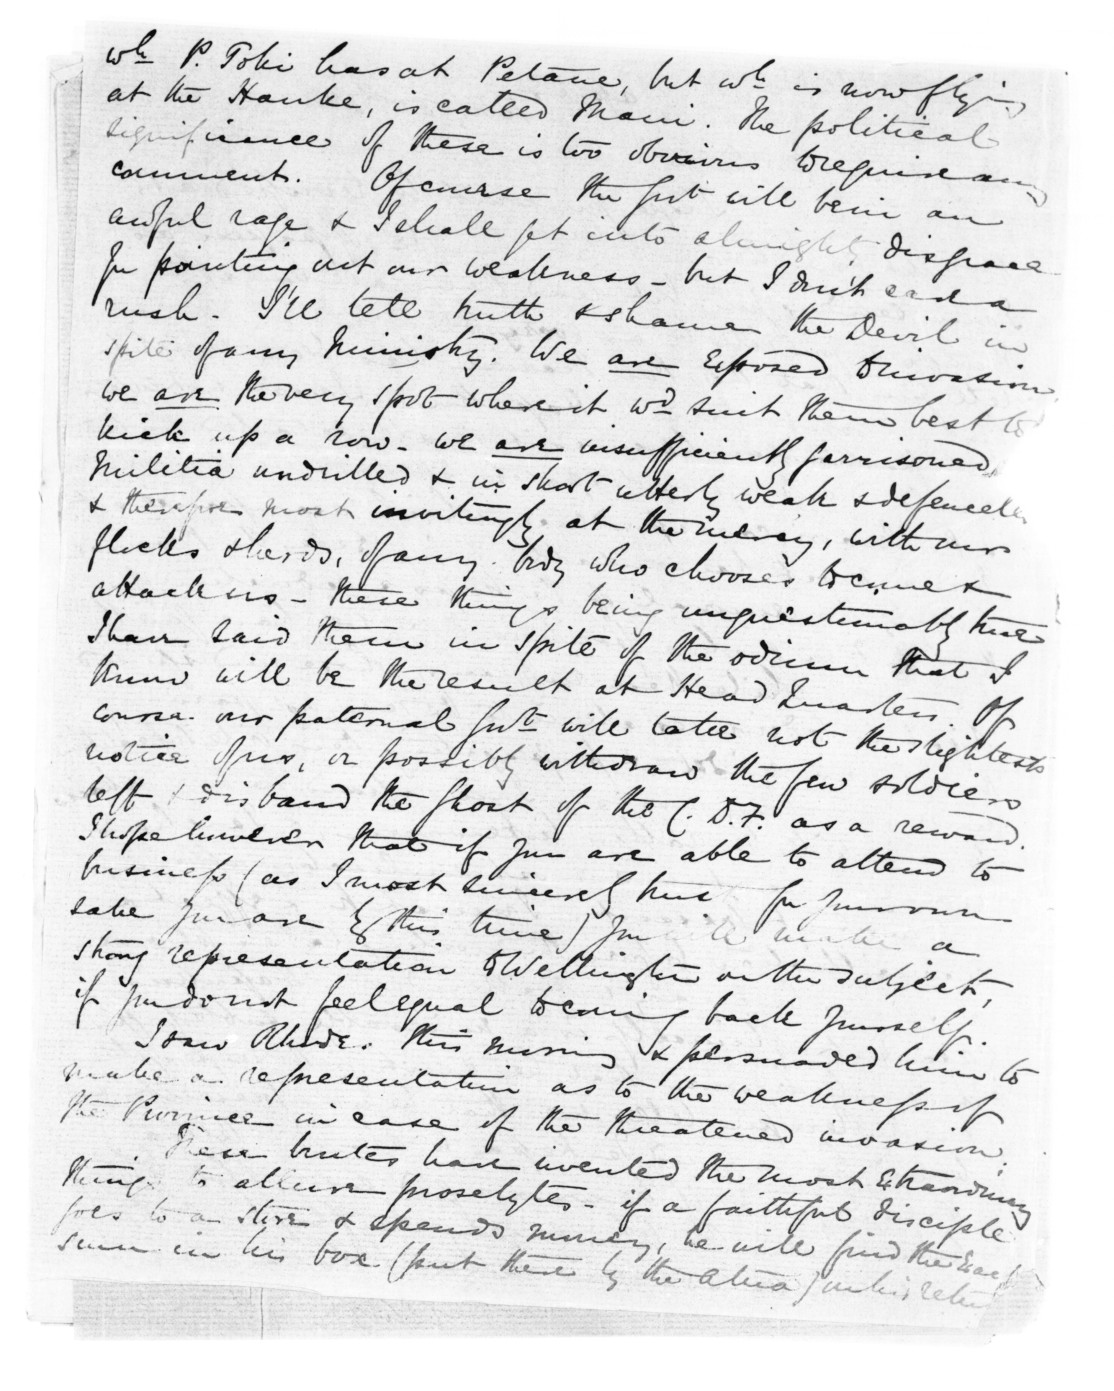 wh P. Toki has at Petane, but wh is now flying
at the Hauke, is called Maui. The political
significance of these is too obvious to require any
comment. Of course the Govt will be in an
awful rage & I shall get into almighty disgrace
for pointing out our weakness - but I don't care a
rush. I'll tell truth & shame the Devil in
spite of any Ministry. We are exposed to invasion,
we are the very spot where it wd suit them best to
kick up a row - we are insufficiently garrisoned,
Militia undrilled & in short utterly weak & defenceless
& therefore most invitingly at the mercy, with our
flocks & herds, of any body who chooses to come &
attack us - these things being unquestionably true
I have said them in spite of the odium that I
know will be the result at Head Quarters. Of
course our paternal Govt will take not the slightest
notice of us, or possibly withdraw the few soldiers
left & disband the ghost of the C. D. F. as a reward.
I hope however that if you are able to attend to
business (as I most sincerely trust for your own
sake you are by this time) you will make a
strong representation to Wellington on the subject,
if you do not feel equal to coming back yourself.
I saw Rhodes this morning & persuaded him to
make a representation as to the weakness of
the Province in case of the threatened invasion.
These brutes have invented the most extraordinary
things to allure proselytes - if a faithful disciple
goes to a store & spends money, he will find the exact
sum in his box (put there by the Atua) on his return